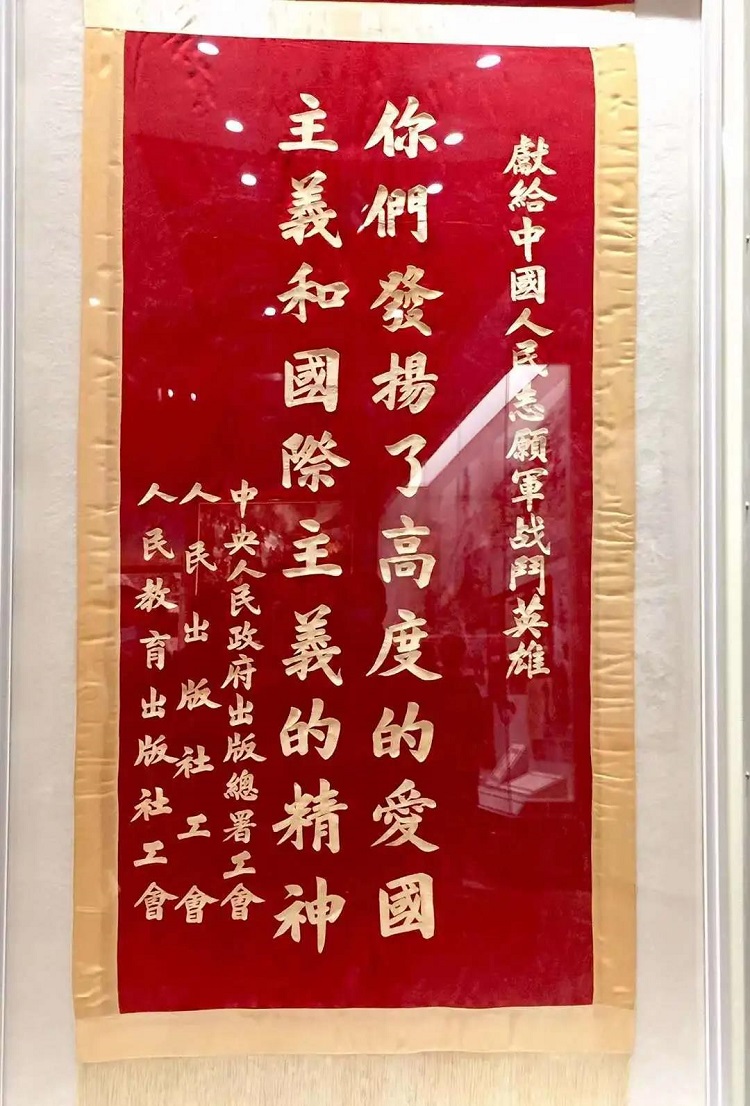 獻給中國人民志願軍战鬥英雄
你們發揚了高度的愛國
主義和國際主義的精神
中央人民政府出版總署工會
人民出版社工會
人民教育出版社工會